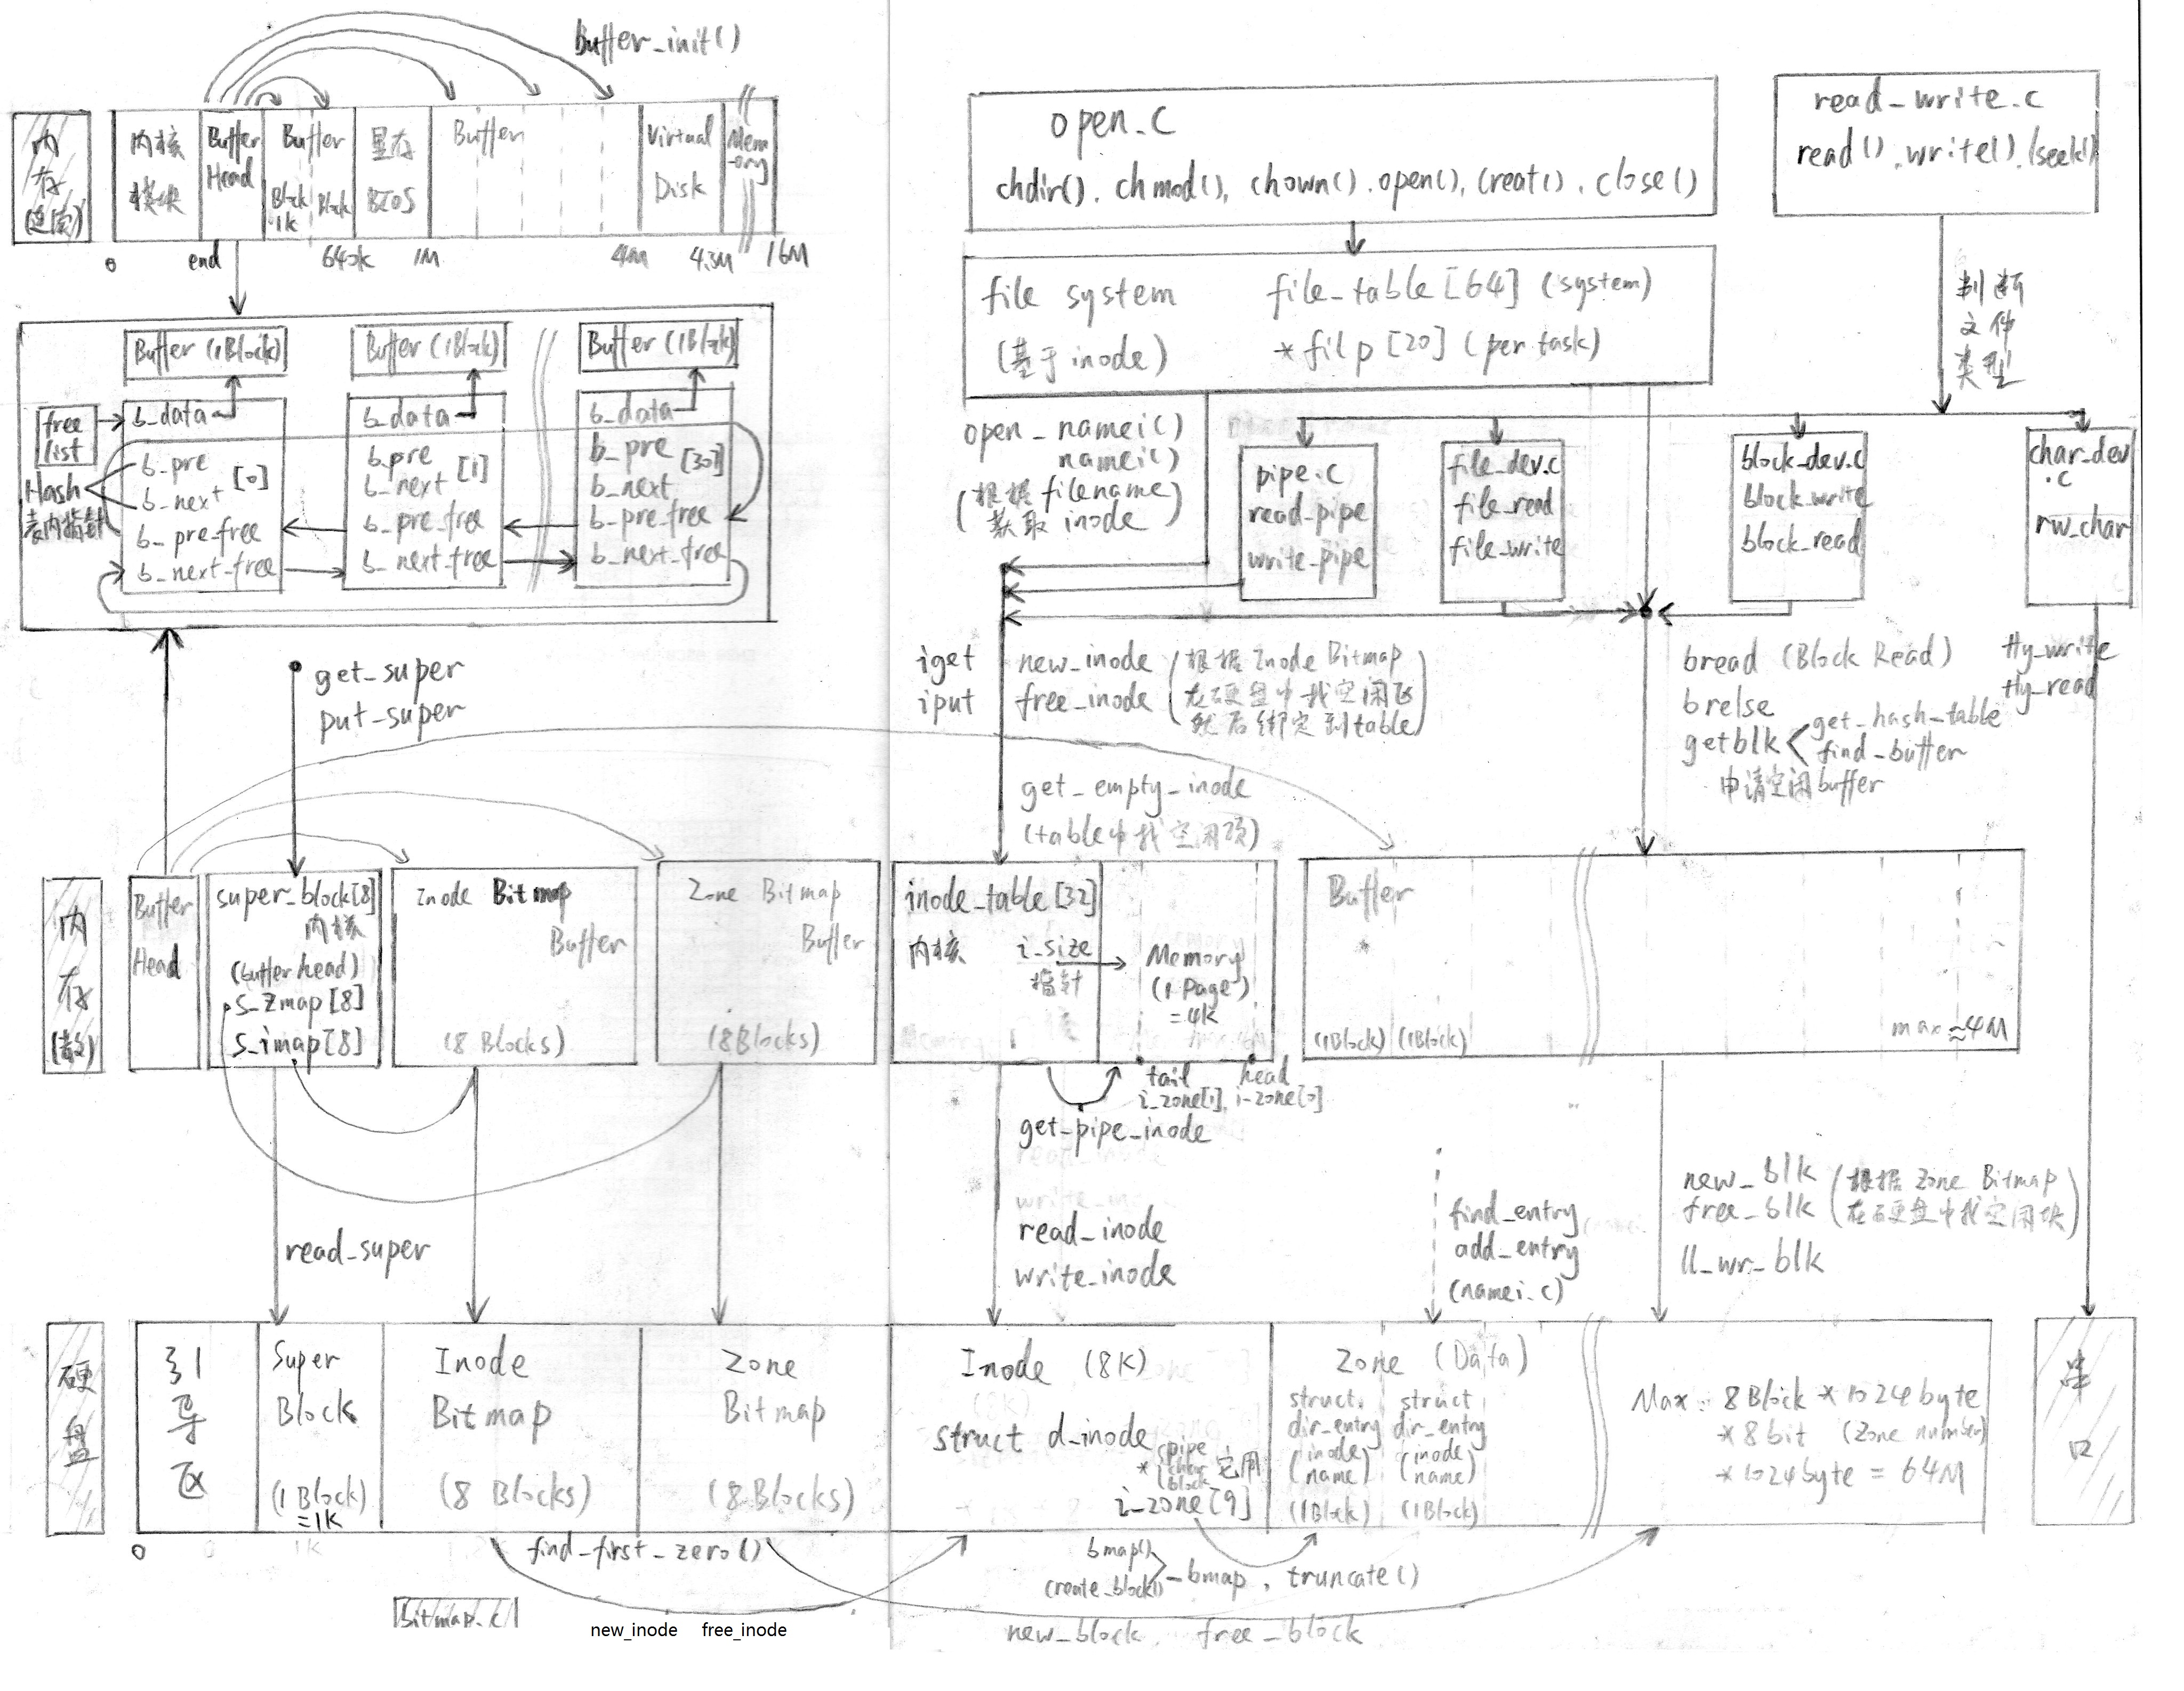 Buffer_init()
内存(连续)
内核模块
Buffer Head
Buffer
Block 1k
Block
显存 BIOS
Buffer
Virtual Disk
Memory
0
end
640k
1M
4M
4.5M
16M
Buffer (1Block)
Buffer (1Block)
Buffer (1Block)
free list
b_data
b_pre
b_next
[0]
b_pre_free
b_next_free
Hash表内指针
b_data
b_pre
b_next
[1]
b_pre_free
b_next_free
b_data
b_pre
[307]
b_next
b_pre_free
b_next_free
open.c
chdir(). chmod(), chown().open(), creat(). close()
read_write.c
read().write().lseek()
file system
(基于inode)
file_table[64] (system)
*filp [20] (per task)
判断文件类型
open_namei()
namei()
(根据filename
获取 inode)
pipe.c
read_pipe
write_pipe
file_dev.c
file_read
file_write
block_dev.c
block_write
block_read
char_dev
.c
rw_char
get_super
put_super
iget
iput
new_inode
free_inode
(根据Inode Bitmap
在硬盘中找空闲区
然后绑定到table)
get_empty_inode
(table中找空闲项)
bread (Block Read)
brelse
getblk
get_hash_table
find_buffer
申请空闲buffer
tty_write
tty_read
内存(散)
Buffer
Head
super_block[8]
内核
(buffer head)
s_zmap[8]
s_imap[8]
Inode Bitmap
Buffer
(8 Blocks)
Zone Bitmap
Buffer
(8Blocks)
inode_table[32]
内核
i_size
指针
Memory
(1 Page)
=4k
Buffer
(1Block) (1Block)
max≈4M
tail
i_zone[1],
head
i_zone[0]
get_pipe_inode
read_super
read_inode
write_inode
find_entry
add_entry
(namei.c)
new_blk
free_blk
(根据 Zone Bitmap
在硬盘中找空闲块)
ll_wr_blk
硬盘
引导区
Super
Block
(1 Block)
=1K
Inode
Bitmap
(8 Blocks)
Zone
Bitmap
(8 Blocks)
Inode (8K)
struct d_inode
*
pipe
char
block
i_zone[9]
Zone (Data)
struct
dir_entry
(inode
name)
(1Block)
struct
dir_entry
(inode
name)
(1Block)
Max: 8Block * 1024byte
*8bit (Zone number)
*1024byte = 64M
串口
0
1K
find_first_zero()
bmap()
(create_block)
_bmap. truncate()
Bitmap.c
new_inode free_inode
new_block. free_block